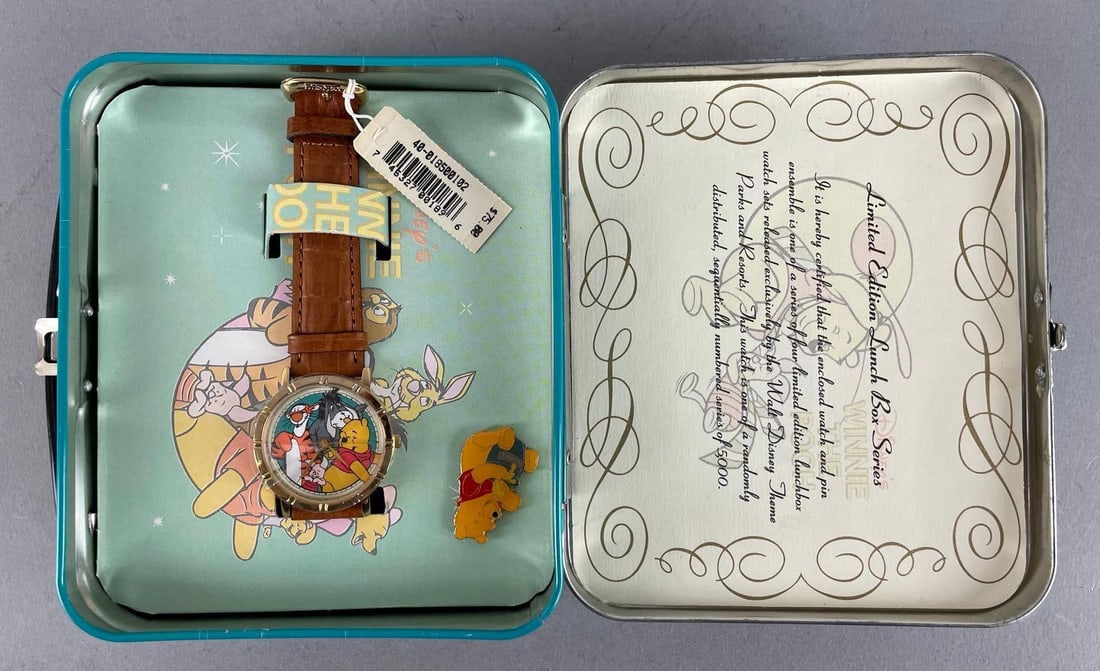 40-019500102
NNIE
THE
Limited Edition Lunch Box Series
It is hereby certified that the enclosed watch and pin
ensemble is one of a series of four limited edition lunchbox
watch sets released exclusively by the Walt Disney Theme
Parks and Resorts. This watch is one of a randomly
distributed, sequentially numbered series of 5000.
WINNIE
THE
POOH